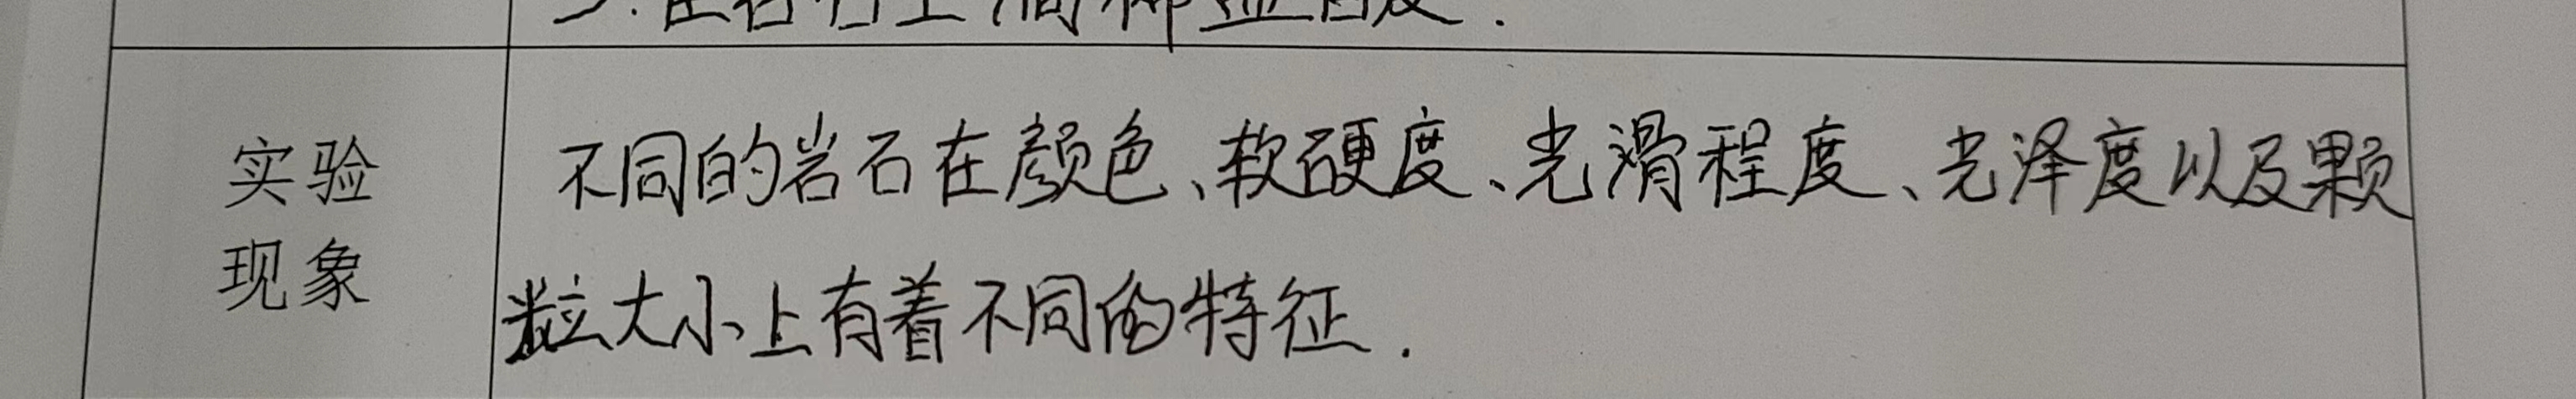 3.在岩石上滴稀盐酸.
实验
现象
不同的岩石在颜色、软硬度、光滑程度、光泽度以及颗
粒大小上有着不同的特征.